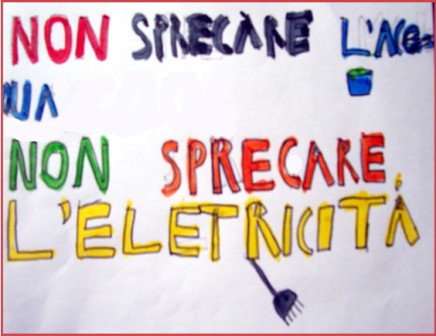 NON SPRECARE L'ACQ=
UA
NON SPRECARE
L'ELETRICITÁ